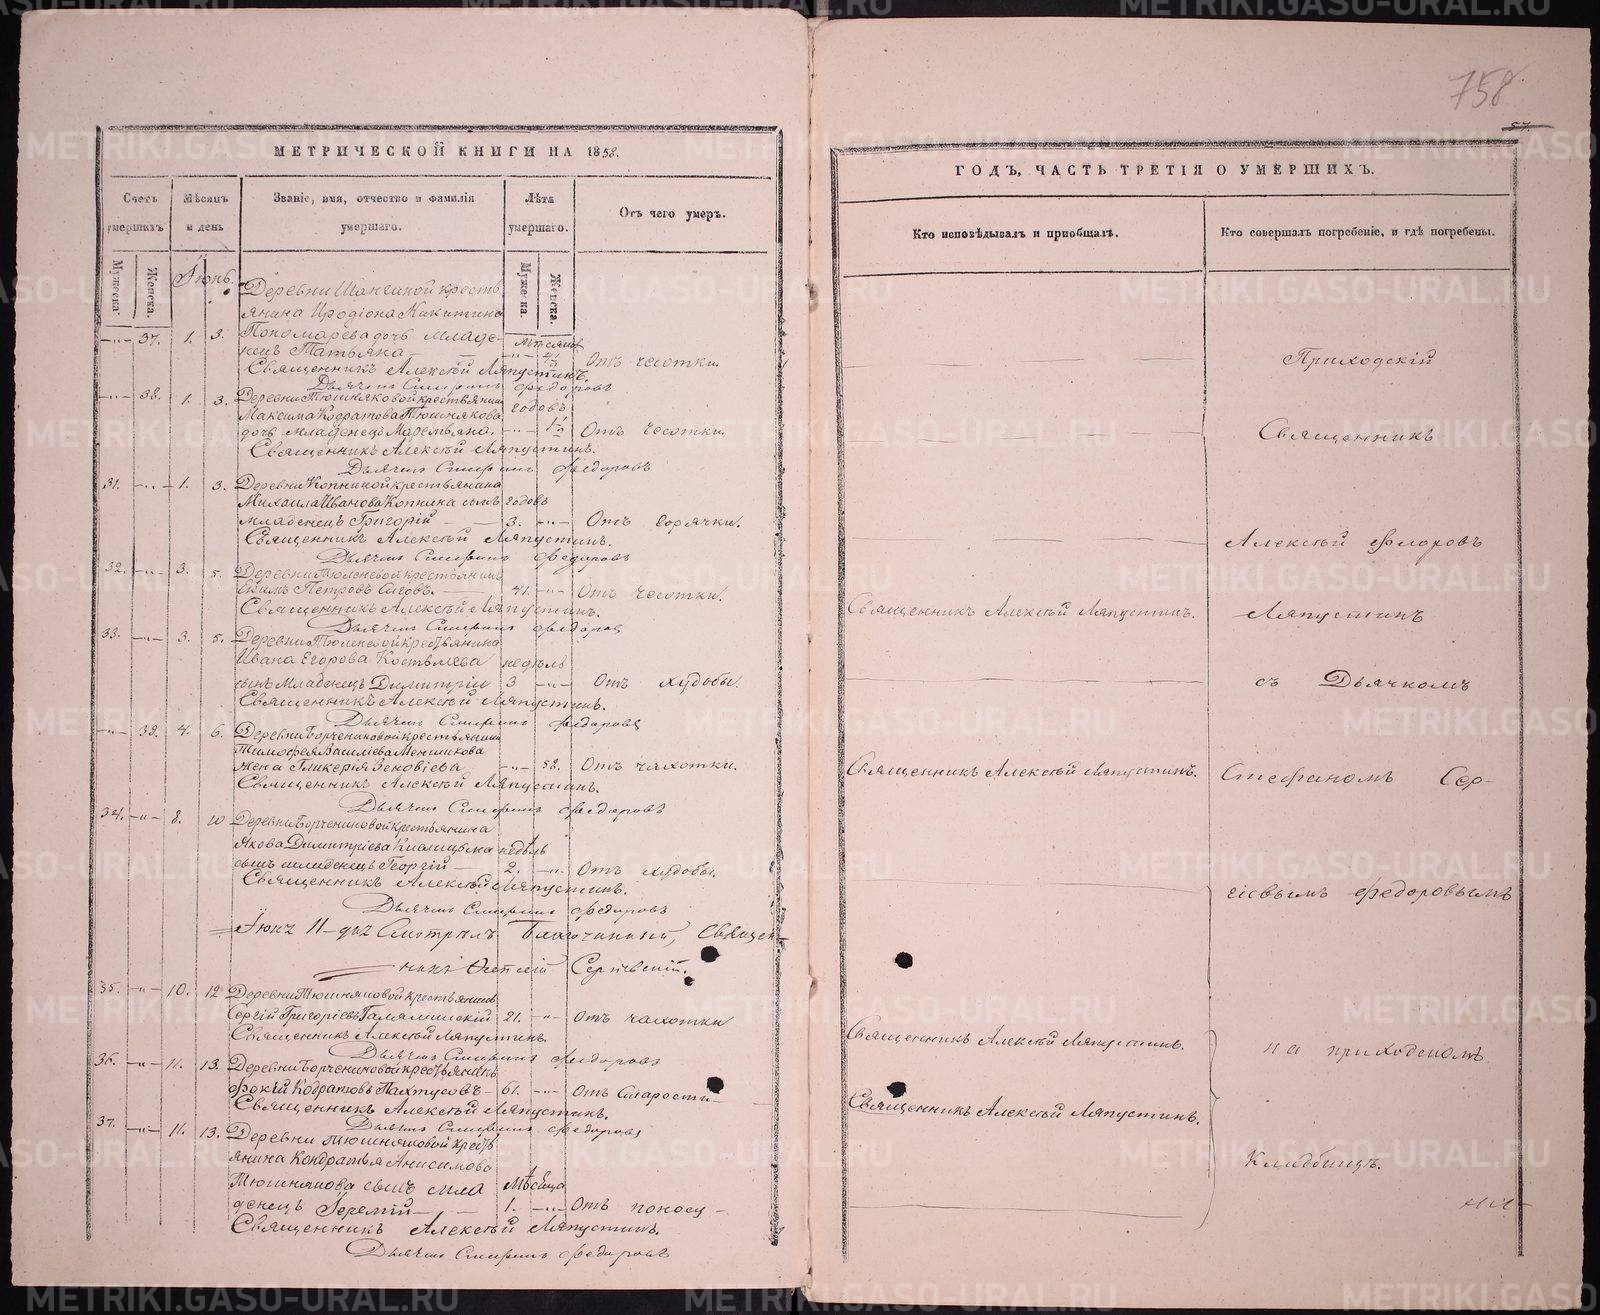 758
57.
МЕТРИЧЕСКОЙ КНИГИ НА 1858.
Счетъ умершихъ
Мужеска.
Женска.
Мѣсяцъ и день
Званіе, имя, отчество и фамилія умершаго.
Лѣта умершаго.
Мужеска.
Женска.
Отъ чего умеръ.
Іюнь.
Деревни крестьянина Иродіона Никитина
37. 1. 3. Пономарева дочь младенецъ Татьяна Отъ чесотки.
Священникъ Алексѣй Ляпустинъ.
Дьячекъ Федоровъ
38. 1. 3. Деревни Тюшняковой крестьянина
Максима Кодратова Тюшнякова годовъ
дочь младенецъ Маремьяна. 1 1/2 Отъ чесотки.
Священникъ Алексѣй Ляпустинъ.
Дьячекъ Федоровъ
31. 1. 3. Деревни Копниной крестьянина
Михаила Иванова Копнина сынъ годовъ
младенецъ Григорій 3. Отъ горячки.
Священникъ Алексѣй Ляпустинъ.
Дьячекъ Федоровъ
32. 3. 5. Деревни Тюленевой крестьянинъ
Екимъ Петровъ 41. Отъ чесотки.
Священникъ Алексѣй Ляпустинъ.
Дьячекъ Федоровъ
33. 3. 5. Деревни Тюленевой крестьянина
Ивана Егорова Костылева недѣль
сынъ младенецъ Димитрій 3 Отъ худобы.
Священникъ Алексѣй Ляпустинъ.
Дьячекъ Федоровъ
39. 4. 6. Деревни Борчениновой крестьянина
Тимофея Василіева Меншикова
жена Гликерія Зеновіева 52. Отъ чахотки.
Священникъ Алексѣй Ляпустинъ.
Дьячекъ Федоровъ
34. 8. 10 Деревни Борчениновой крестьянина
Якова Димитріева недѣль
сынъ младенецъ Георгій 2. Отъ худобы.
Священникъ Алексѣй Ляпустинъ.
Дьячекъ Федоровъ
11 Смотрѣлъ Благочинный, Священ-
никъ
35. 10. 12 Деревни Тюшняковой крестьянинъ
Сергій Григоріевъ 21. Отъ чахотки
Священникъ Алексѣй Ляпустинъ.
Дьячекъ Федоровъ
36. 11. 13. Деревни Борчениновой крестьянинъ
Фокій Кодратовъ Пахтусовъ 61. Отъ старости
Священникъ Алексѣй Ляпустинъ.
Дьячекъ Федоровъ
37. 11. 13. Деревни Тюшняковой кресть
янина Кондратья Анисимова
Тюшнякова сынъ мла мѣсяца
денецъ Іеремій 1. Отъ поносу
Священникъ Алексѣй Ляпустинъ.
Дьячекъ Федоровъ
ГОДЪ, ЧАСТЬ ТРЕТІЯ О УМЕРШИХЪ.
Кто исповѣдывалъ и пріобщалъ.
Кто совершалъ погребеніе, и гдѣ погребены.
Приходскій
Священникъ
Алексѣй Флоровъ
Священникъ Алексѣй Ляпустинъ. Ляпустинъ
съ Дьячкомъ
Священникъ Алексѣй Ляпустинъ. Стефаномъ Сер-
гіевымъ Федоровымъ
Священникъ Алексѣй Ляпустинъ. на приходскомъ
Священникъ Алексѣй Ляпустинъ.
Кладбищѣ.
METRIKI.GASO-URAL.RU